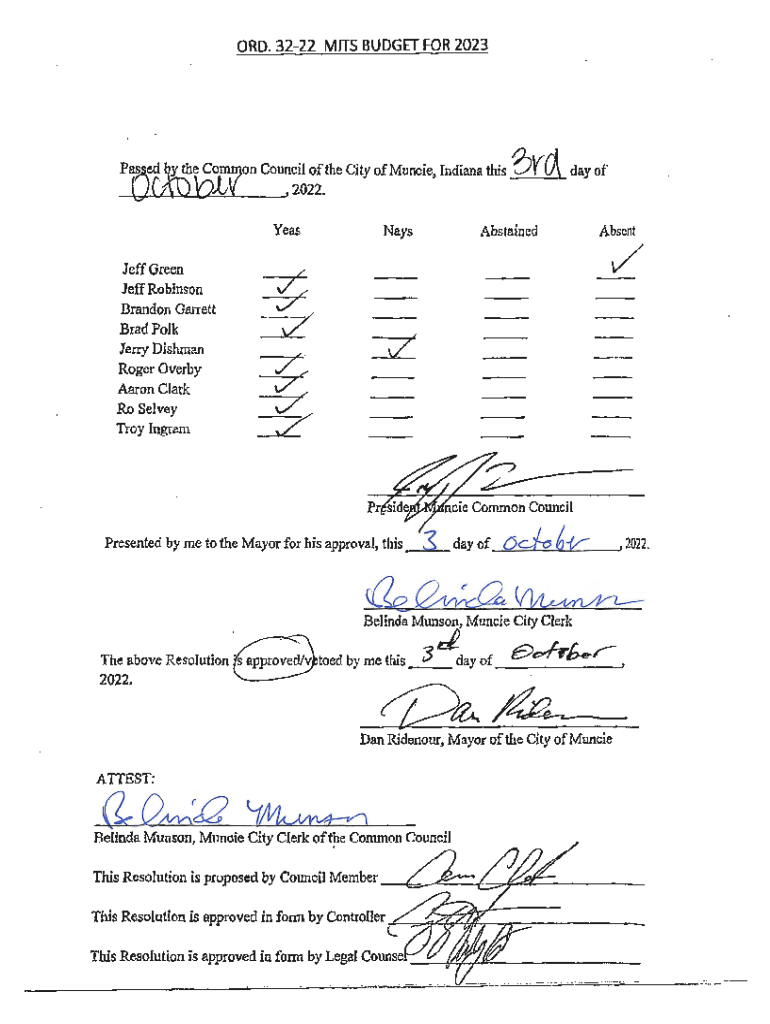 ORD. 32-22 MITS BUDGET FOR 2023
Passed by the Common Council of the City of Muncie, Indiana this 3rd day of
October, 2022.
Yeas Nays Abstained Absent
Jeff Green
Jeff Robinson
Brandon Garrett
Brad Polk
Jerry Dishman
Roger Overby
Aaron Clark
Ro Selvey
Troy Ingram
President Muncie Common Council
Presented by me to the Mayor for his approval, this 3 day of October, 2022.
Belinda Munson
Belinda Munson, Muncie City Clerk
The above Resolution is approved/vetoed by me this 3rd day of October,
2022.
Dan Ridenour
Dan Ridenour, Mayor of the City of Muncie
ATTEST:
Belinda Munson
Belinda Munson, Muncie City Clerk of the Common Council
This Resolution is proposed by Council Member
This Resolution is approved in form by Controller
This Resolution is approved in form by Legal Counsel